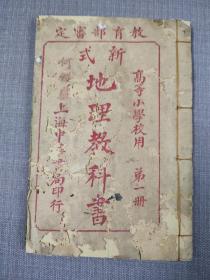 教育部審定
新式
高等小學校用 第一册
地理教科書
上海中
局印行